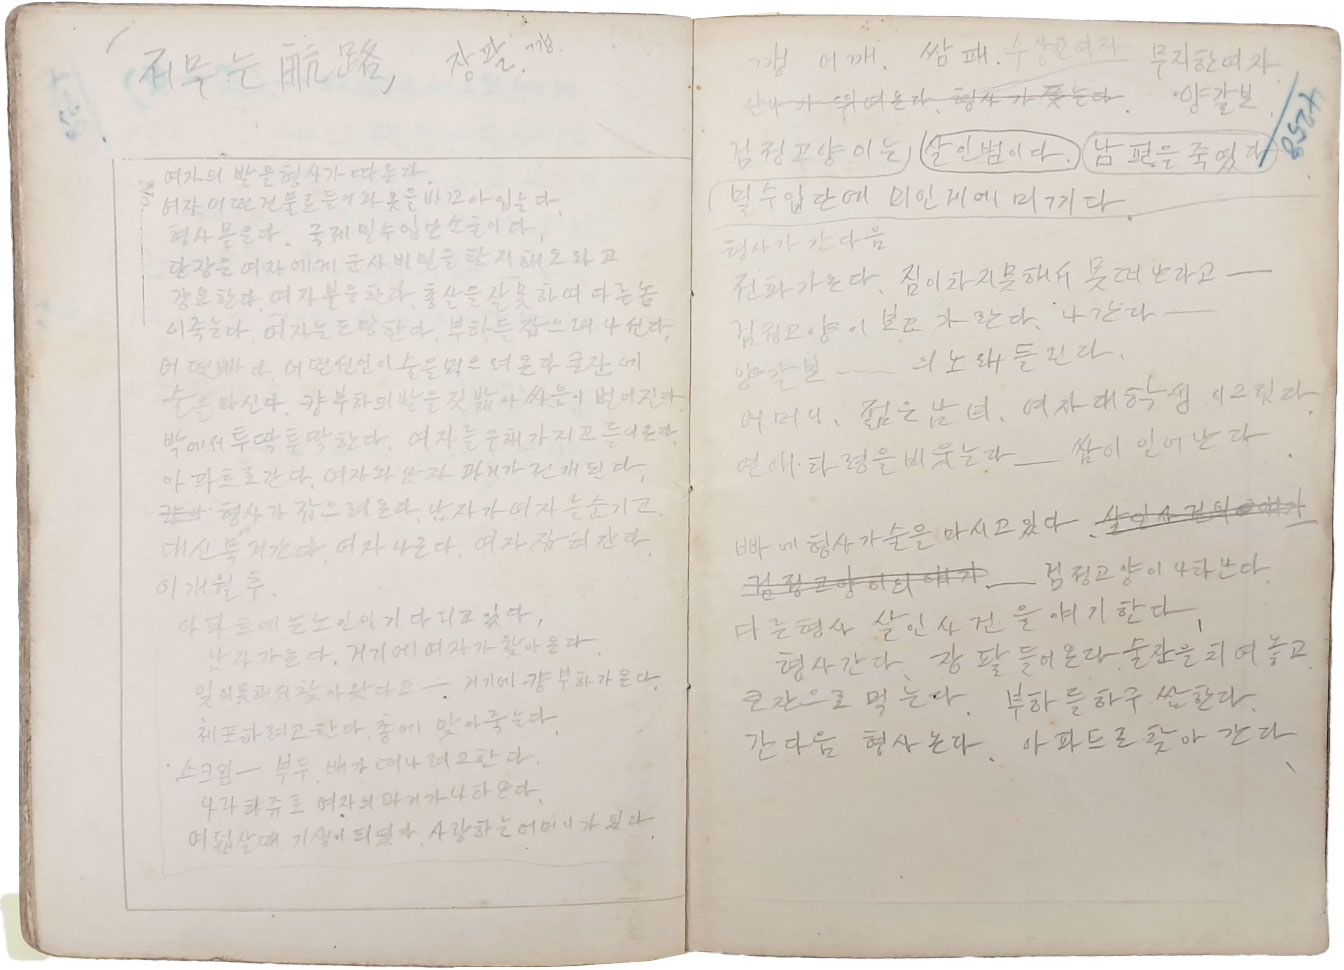 저무는 航路, 장팔, 깽.
여자의 발을 형사가 따른다.
여자 어떤 건물로 들어와 옷을 바꼬아 입는다,
형사 몰은다. 국제 밀수입단 소굴이다,
단장은 여자에게 군사비밀을 탐지해오라고
강요한다, 여자 불응한다, 총살을 잘못하여 다른놈
이 죽는다. 여자는 도망한다. 부하들 잡으려 나선다,
어떤 빠다 어떤 선인이 술을 먹으려 온다 큰잔에
술을 마신다, 걍부하의 발을 짓밟아 싸움이 벌어진다
밖에서 투딱투딱한다. 여자를 구해가지고 들어온다,
아파트로 간다, 여자와 남자 과거가 전개된다,
형사가 잡으려 온다, 남자가 여자를 숨기고
대신 묵겨간다, 여자 나온다. 여자 잡혀간다,
이개월 후.
아파트에는 노인이 기다리고 있다,
남자가 온다. 거기에 여자가 찾아온다
잊이못해서 찾아왔다고 — 거기에 걍부하가 온다.
체포하려고 한다. 총에 맞아 죽는다,
스크린 — 부두. 배가 떠나려고 한다.
나라타쥬로 여자의 과거가 나타난다,
여덟살때 기생이 되었다. 사랑하는 어머니가 있다
No.
깽 어깨. 쌈패. 수상한여자 무지한여자
형사가 쫓는다. 양갈보
4258
검정고양이는 살인범이다. 남편을 죽였다
밀수입단에 미인계에 미끼다.
형사가 간다음
전화가온다, 짐이 와지못해서 못떠난다고 —
검정고양이 보고 가란다. 나간다 —
양갈보 — 의 노래 들린다.
어머니, 젊은 남녀. 여자대학생 이끄럿다,
연애·타령을 비웃는다 — 쌈이 일어난다
빠에 형사가 술을 마시고 있다. 살인사건의 얘기
검정고양이의 얘기 — 검정고양이 나타난다.
다른형사 살인사건을 얘기한다,
형사간다, 장팔 들어온다 술잔을 치여놓고
큰잔으로 먹는다. 부하들하구 쌈한다.
간다음 형사 온다. 아파트로 찾아간다,